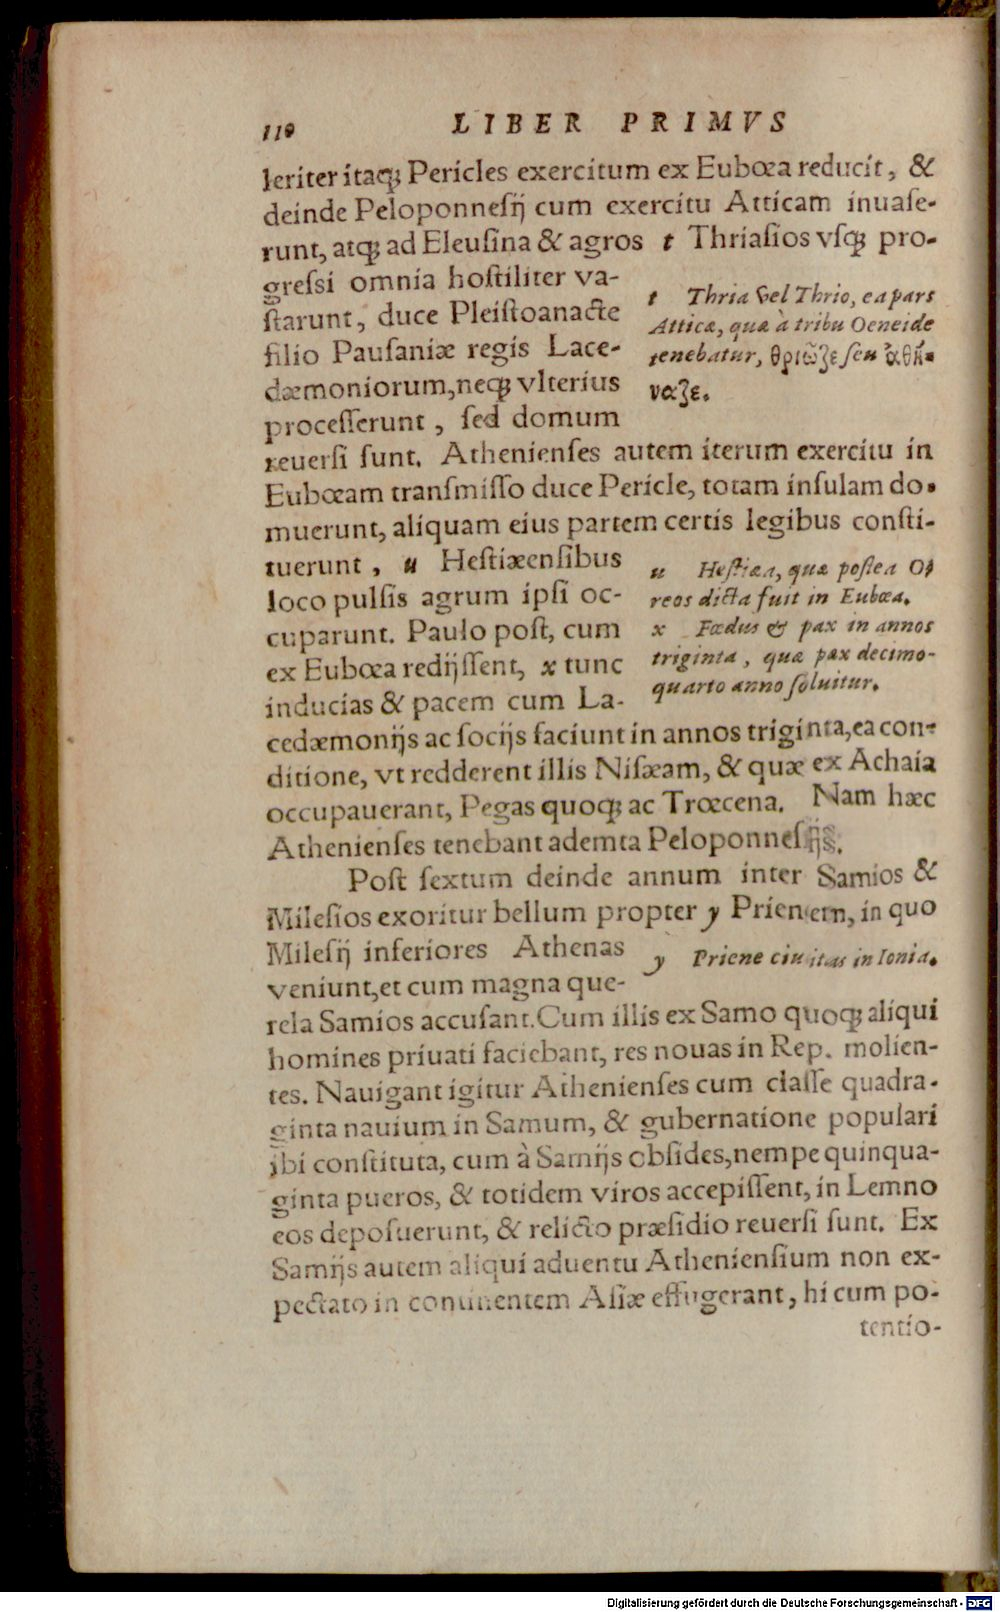 110 LIBER PRIMVS
leriter itaq́ꝫ Pericles exercitum ex Eubœa reducit, &
deinde Peloponneſij cum exercitu Atticam inuaſe-
runt, atq́ꝫ ad Eleuſina & agros t Thriaſios vſq́ꝫ pro-
greſsi omnia hoſtiliter va-
ſtarunt, duce Pleiſtoanacte
filio Pauſaniæ regis Lace-
dæmoniorum, neq́ꝫ vlterius
proceſſerunt, ſed domum
t Thria vel Thrio, ea pars
Atticæ, quæ à tribu Oeneide
tenebatur, θριῶζε ſeu ἀθή-
ναζε.
reuerſi ſunt. Athenienſes autem iterum exercitu in
Eubœam tranſmiſſo duce Pericle, totam inſulam do-
muerunt, aliquam eius partem certis legibus conſti-
tuerunt, u Heſtiæenſibus
loco pulſis agrum ipſi oc-
cuparunt. Paulo poſt, cum
ex Eubœa redijſſent, x tunc
inducias & pacem cum La-
u Heſtiæa, quæ poſtea O-
reos dicta fuit in Eubœa.
x Fœdus & pax in annos
triginta, quæ pax decimo-
quarto anno ſoluitur.
cedæmonijs ac ſocijs faciunt in annos triginta, ea con-
ditione, vt redderent illis Niſæam, & quæ ex Achaia
occupauerant, Pegas quoq́ꝫ ac Trœcena. Nam hæc
Athenienſes tenebant ademta Peloponneſijs.
Poſt ſextum deinde annum inter Samios &
Mileſios exoritur bellum propter y Prienem, in quo
Mileſij inferiores Athenas
veniunt, et cum magna que-
y Priene ciuitas in Ionia.
rela Samios accuſant. Cum illis ex Samo quoq́ꝫ aliqui
homines priuati faciebant, res nouas in Rep. molien-
tes. Nauigant igitur Athenienſes cum claſſe quadra-
ginta nauium in Samum, & gubernatione populari
ibi conſtituta, cum à Samijs obſides, nempe quinqua-
ginta pueros, & totidem viros accepiſſent, in Lemno
eos depoſuerunt, & relicto præſidio reuerſi ſunt. Ex
Samijs autem aliqui aduentu Athenienſium non ex-
pectato in continentem Aſiæ effugerant, hi cum po-
tentio-
Digitalisierung gefördert durch die Deutsche Forschungsgemeinschaft - DFG